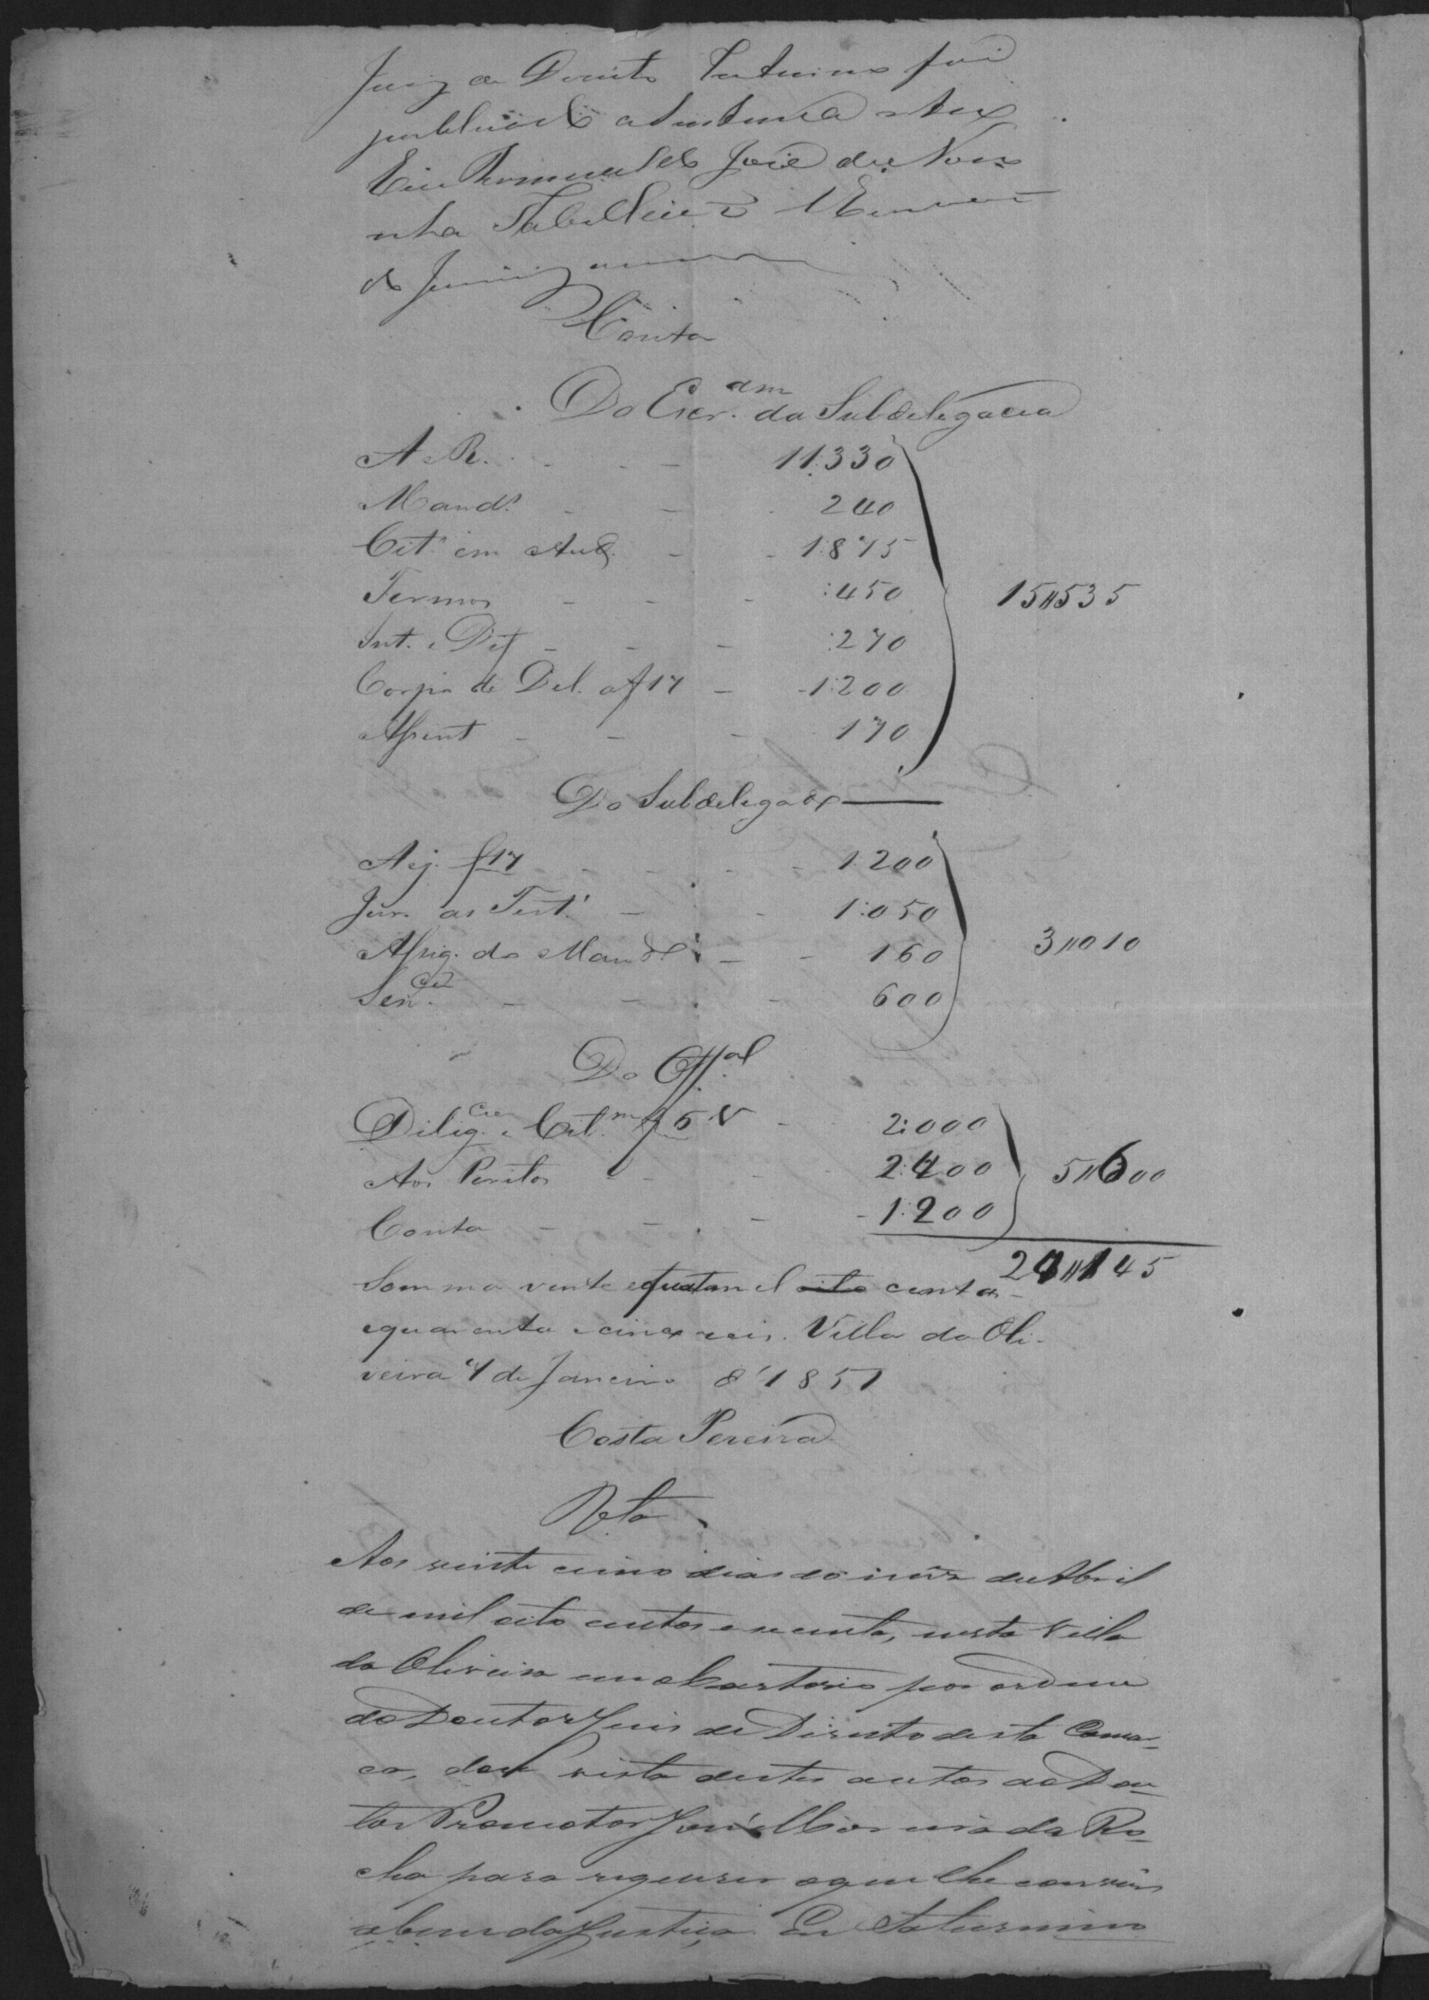 Juiz de Direito interino foi
publicada a sentença
Eu Romualdo José de Noro-
nha Tabelliaõ
Conta
Do Escr.am da Subdelegacia
A e R. 11:330
Mand.s 240
Cit.s em Aud. 1:875
Termos :450
Int. e Def :270
Corpo de Del. a f 17 1:200
Assent 170
15//535
Do Subdelegado
Aj. f 17 1:200
Jur. as Test.s 1:050
Assig. do Mand.o 160
Sen.ça 600
3//010
Do Off.al
Dilig.cia e Cit.m f 5 V 2:000
Aos Peritos 2:400
Conta 1:200
5//600
24//145
Somma vinte e quatro mil cento
e quarenta e cinco reis. Villa da Oli-
veira 4 de Janeiro d' 1851
Costa Pereira
Vista
Aos vinte cinco dias do mês de Abril
de mil oito centos e secenta, nesta Villa
da Oliveira em o Cartorio por ordem
do Doutor Juis de Direito desta Comar-
ca, dou vista destes autos ao Dou-
tor Promotor José da Ro-
cha para requerer o que lhe convier
a bem da Justiça Eu Saturnino